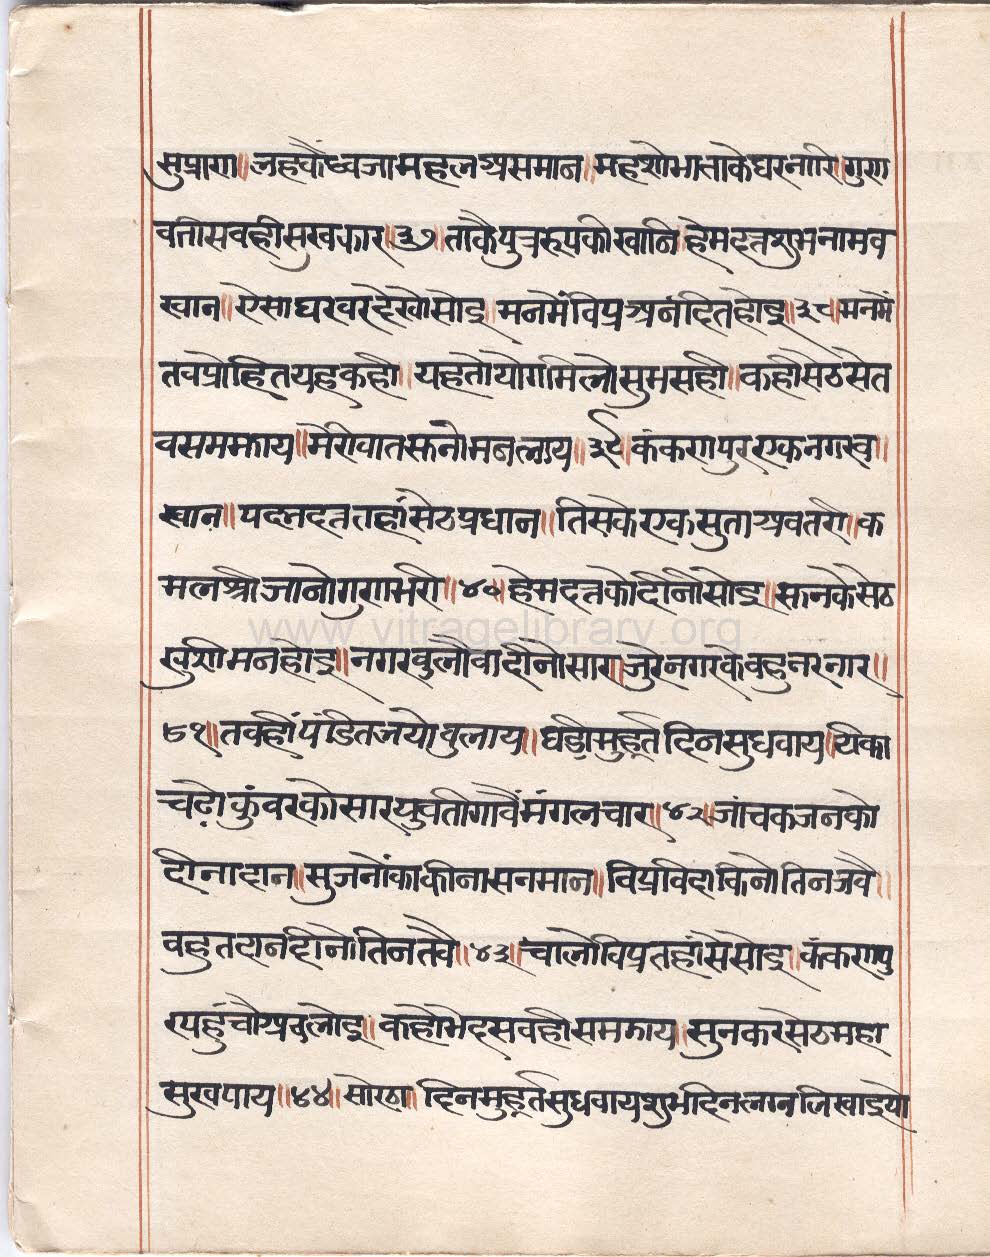 सुप्राण॥ लहकैंध्वजामहलअसमान॥ महशोभाताकेघरनारि॥ गुण
वतीसवहीसुखकार॥३७॥ ताकैपुत्ररूपकीखानि॥ हेमदतशुभनामव
खान॥ ऐसाघरवरदेखोसोइ॥ मनमेंविप्रअनंदितहोइ॥३८॥ मनमें
तवप्रोहितयहकही॥ यहतोयोगमिलोसुभसही॥ कहीसेठसेत
वसमझाय॥ मेरीवातसुनोमनलाय॥३९॥ कंकणपुरएकनगरव॥
खान॥ पदमदततहांसेठप्रधान॥ तिसकेएकसुताअवतरी॥ क
मलश्रीजानोगुणभरी॥४०॥ हेमदतकोदीनीसोइ॥ सुनकेसेठ
खुशीमनहोइ॥ नगरवुलौवादीनोसार॥ जुरेनगरकेवहुनरनार॥
४१॥ तवहीपंडितजयोवुलाय॥ घड़ीमुहूर्तदिनसुधवाय॥ टीका
चढ़ोकुंवरकोसार॥ युवतीगावैंमंगलचार॥४२॥ जांचकजनको
दीनादान॥ सुजनोंकाकीनासनमान॥ विप्रविदाकिनोतिनजवै॥
वहुतदानदीनोतिनतवै॥४३॥ चालोविप्रतहांसेसोइ॥ कंकणपु
रपहुंचोअवलोइ॥ कहोभेदसवहीसमझाय॥ सुनकरसेठमहा
सुखपाय॥४४॥ सोरठा॥ दिनमुहूर्तसुधवायशुभदिनलगनलिखाइयो
www.vitragelibrary.org